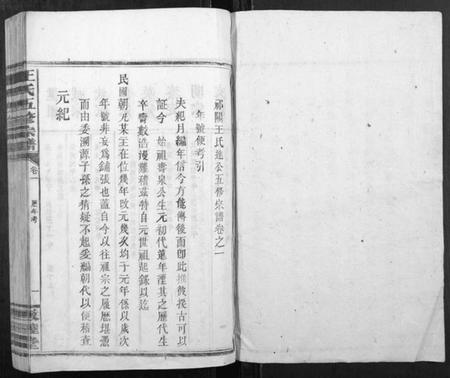 祁陽王氏進公五修宗譜卷之一
年號便考引
夫紀月編年信今方能傳後而卽此推彼援古可以
証今 始祖壽泉公生元初代遠年湮其之歷代生
卒書數浩漫難稽茲特自元世祖起錄以迄
民國朝元某主在位幾年改元幾次均于元年係以歲次
年號非妄爲鋪張也蓋自今以往祖宗之履歷堪憑
而由委溯源子孫之猜疑不起爰編朝代以便稽查
元紀
王氏五修宗譜
卷一
歷年考
一